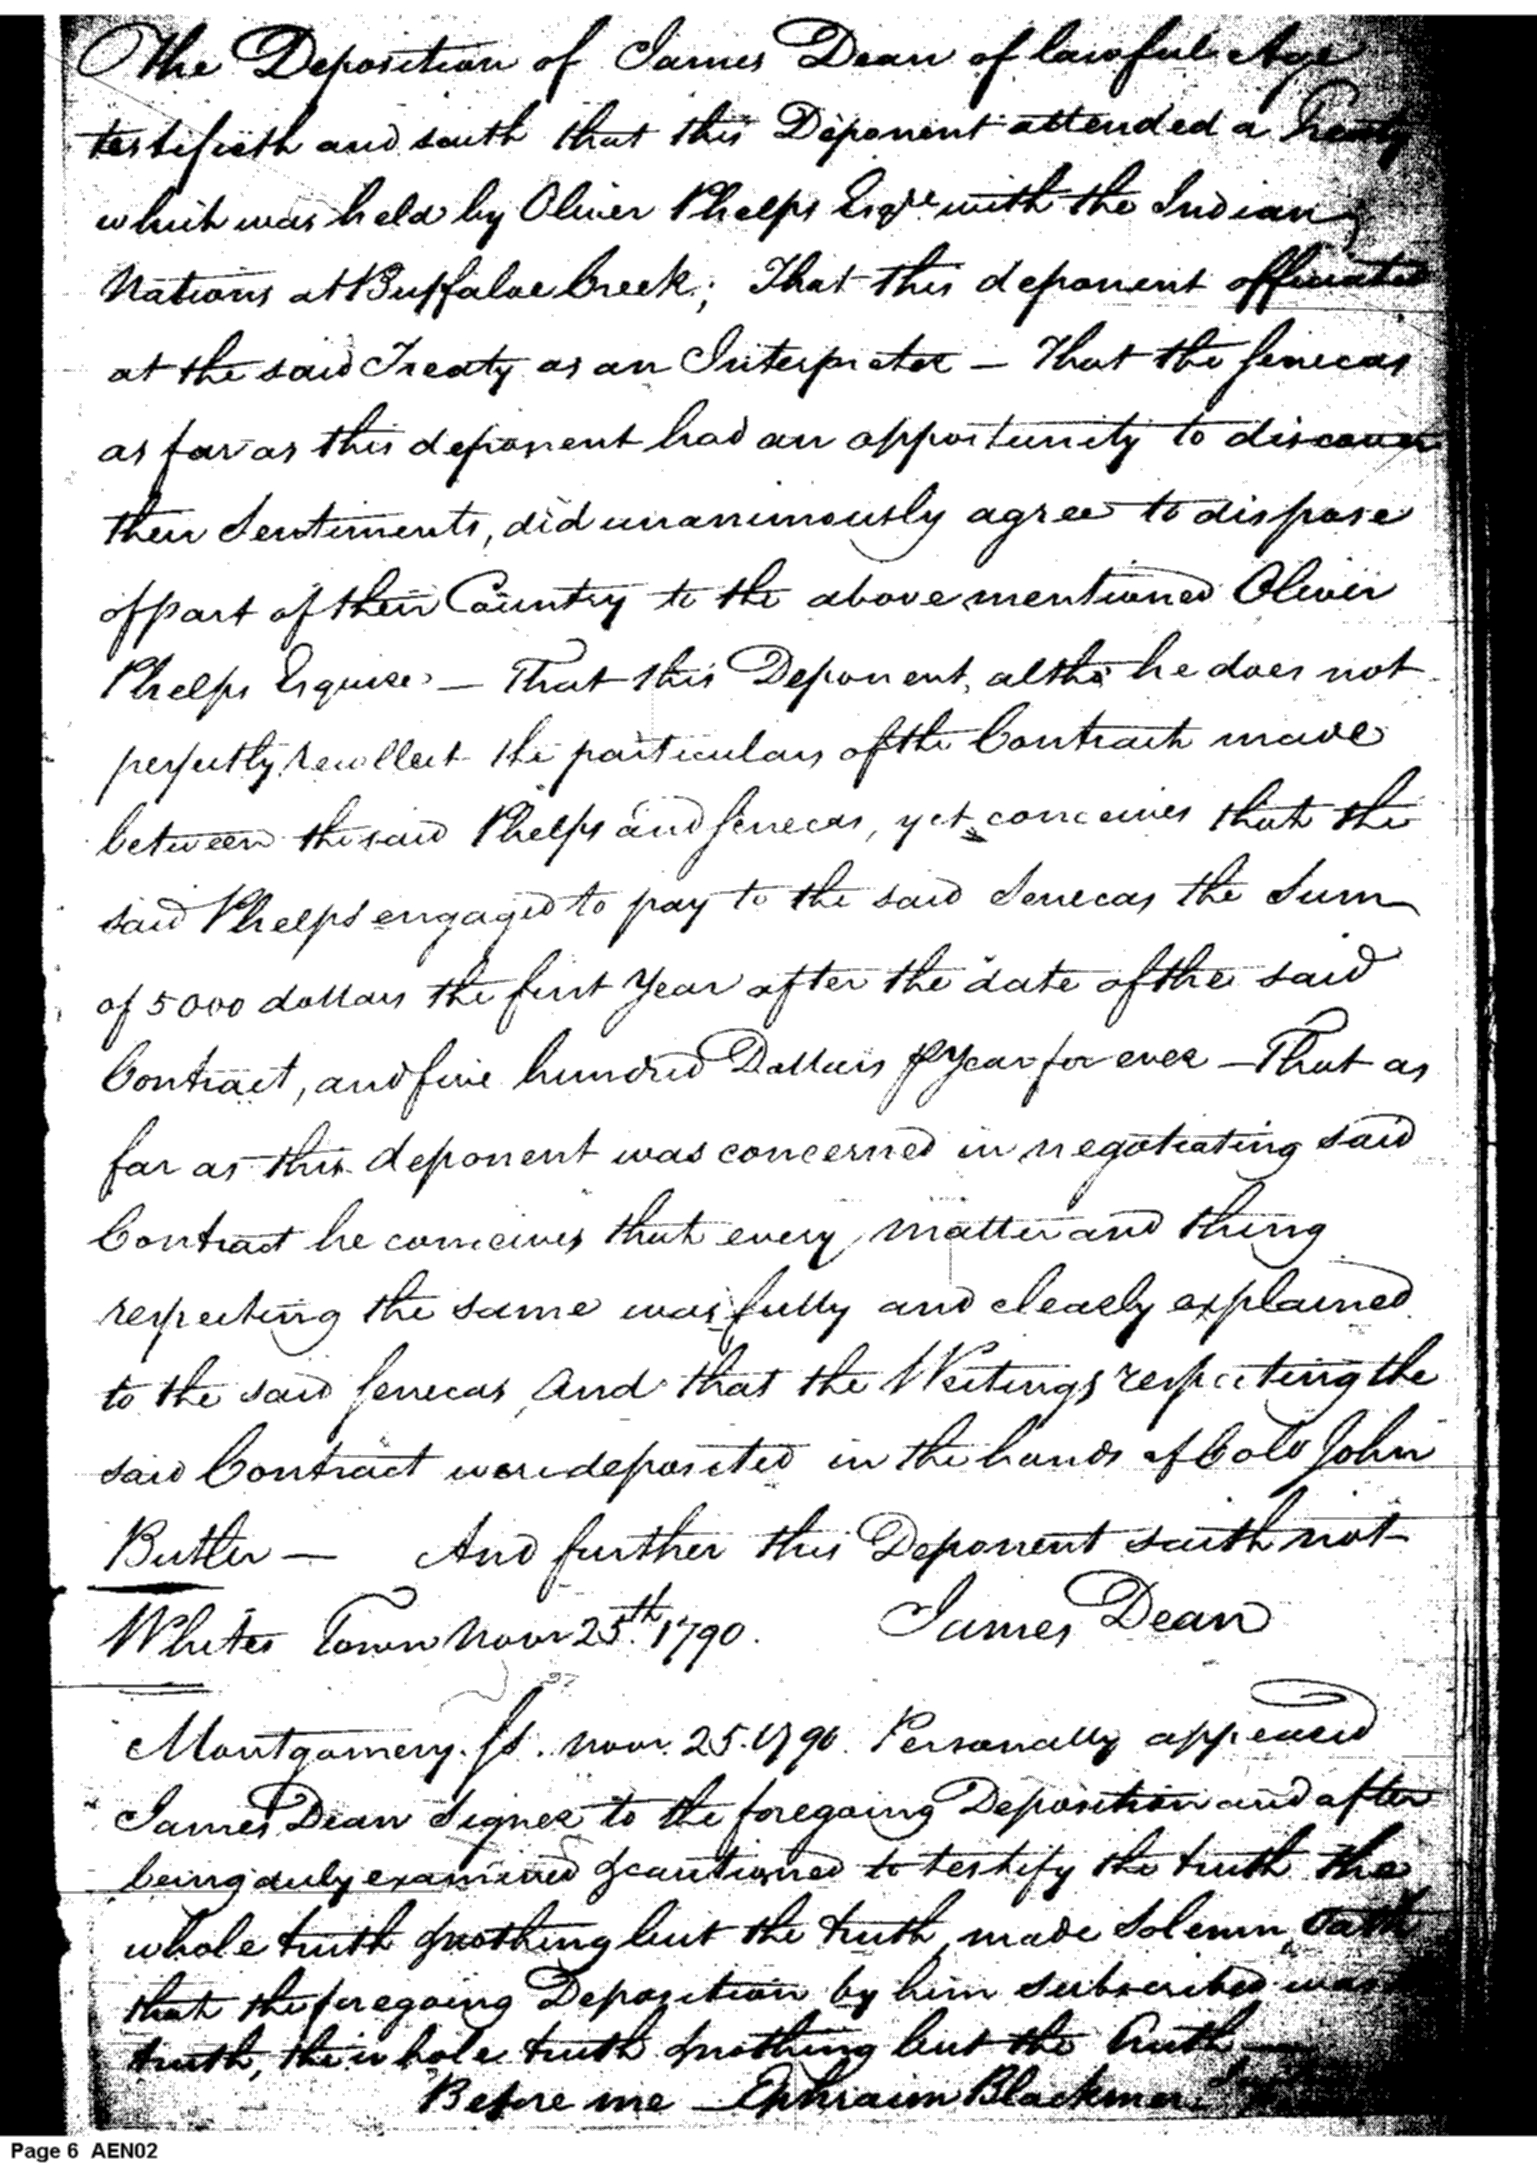 The Deposition of James Dean of lawful Age
testifieth and saith that this Deponent attended a Treaty
which was held by Oliver Phelps Esqre with the Indian
Nations at Buffaloe Creek; That this deponent officiated
at the said Treaty as an Interpreter — That the Senecas
as far as this deponent had an opportunity to discover
their Sentiments, did unanimously agree to dispose
of part of their Country to the above mentioned Oliver
Phelps Esquire — That this Deponent, altho he does not
perfectly recollect the particulars of the Contract made
between the said Phelps and Senecas, yet conceives that the
said Phelps engaged to pay to the said Senecas the Sum
of 5000 dollars the first Year after the date of the said
Contract, and five hundred Dollars ⅌ Year for ever — That as
far as this deponent was concerned in negotiating said
Contract he conceives that every matter and thing
respecting the same was fully and clearly explained
to the said Senecas, And that the Writings respecting the
said Contract were deposited in the hands of Colo John
Butler — And further this Deponent saith not
Whites Town Novr 25th. 1790. James Dean
Montgomery. Ss. Novr. 25. 1790. Personally appeared
James Dean Signer to the foregoing Deposition and after
being duly examined & cautioned to testify the truth the
whole truth & nothing but the truth, made Solemn Oath
that the foregoing Deposition by him subscribed was
truth, the whole truth & nothing but the truth —
Before me — Ephraim Blackmer
Page 6 AEN02